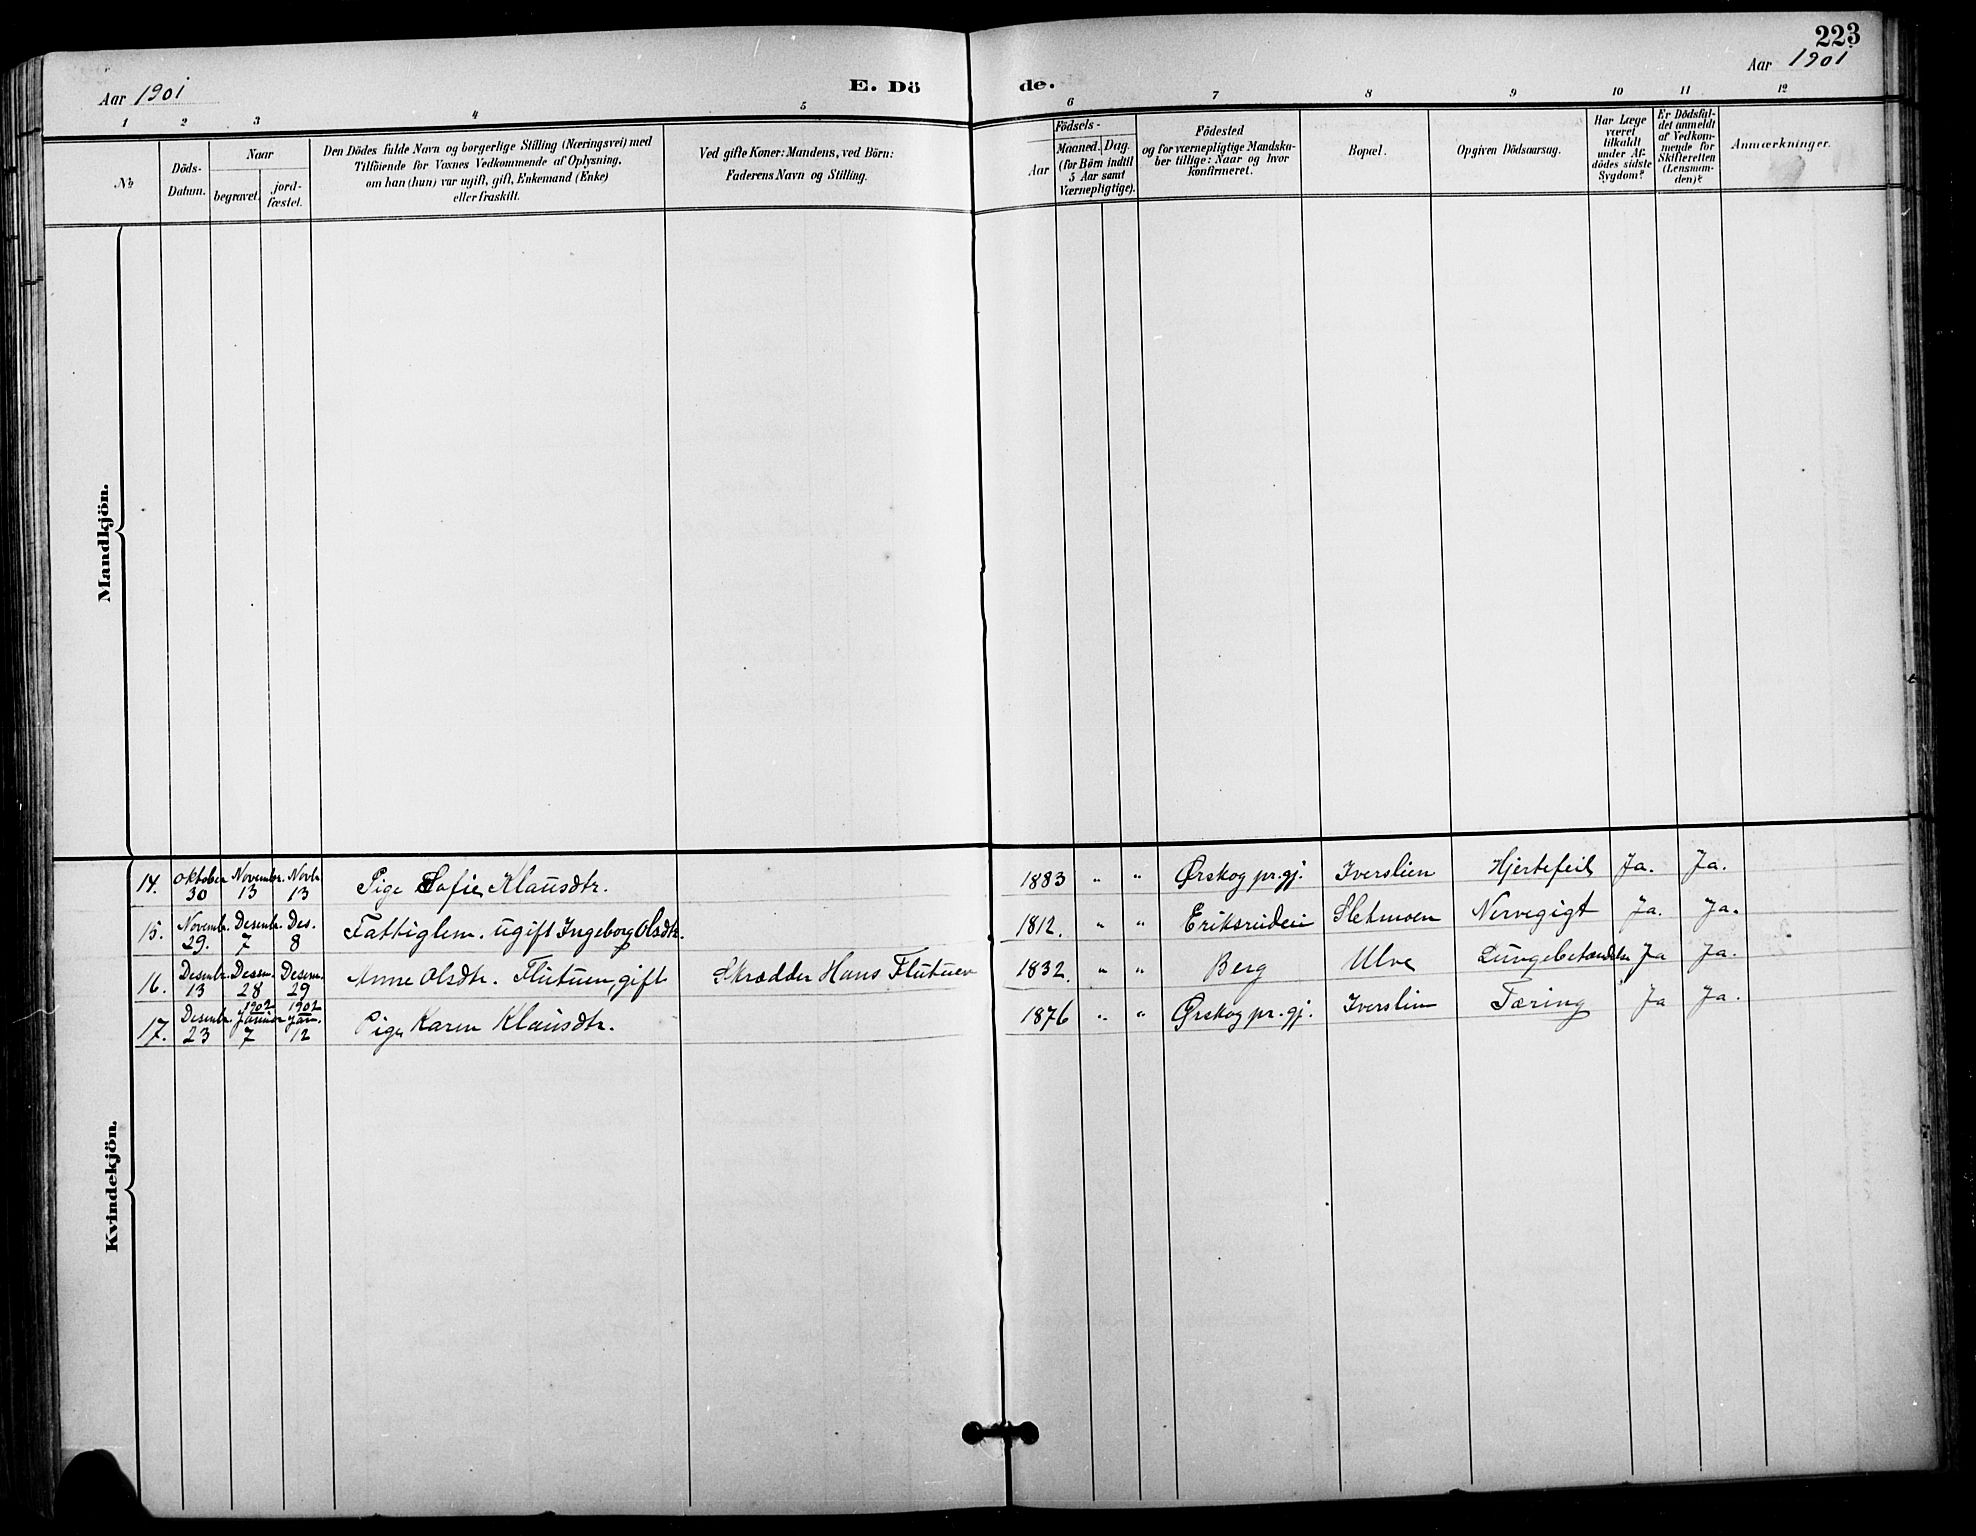 223
Aar 1901
E. Dö
de.
Aar 1901
1 2 3 4 5 6 7 8 9 10 11 12
No
Döds-
Datum.
Naar
begravet.
jord-
fæstet.
Den Dödes fulde Navn og borgerlige Stilling (Næringsvei) med
Tilföiende for Voxnes Vedkommende af Oplysning,
om han (hun) var ugift, gift, Enkemand (Enke)
eller fraskilt.
Ved gifte Koner: Mandens, ved Börn:
Faderens Navn og Stilling.
Födsels-
Aar
Maaned. Dag.
(for Börn indtil
5 Aar samt
Værnepligtige).
Födested
og for værnepligtige Mandska-
ber tillige: Naar og hvor
konfirmeret.
Bopæl.
Opgiven Dödsaarsag.
Har Læge
været
tilkaldt
under Af-
dödes sidste
Sygdom?
Er Dödsfal-
det anmeldt
af Vedkom-
mende for
Skifteretten
(Lensman-
den)?
Anmærkninger.
Mandkjön.
Kvindekjön.
14. Oktober 30 Novembr. 13 Novbr 13 Pige Sofie Klausdtr. 1883 " " Ørskog pr.gj. Iverslien Hjertefeil Ja. Ja.
15. Novembr. 29. Desembr. 7 Des. 8 Fattiglem. ugift Ingeborg Olsdtr. 1812. " " Eriksrudeie Sletmoen Nervegigt Ja. Ja.
16. Desembr. 13 Desem. 28 Desem. 29 Anne Olsdtr. Flutuen, gift Skrædder Hans Flutuen 1832. " " Berg Ulve Lungebetændelse Ja Ja.
17. Desembr. 23 1902 Januar 7 1902 Jan. 12 Pige Karen Klausdtr. 1876 " " Ørskog pr.gj. Iverslien Tæring Ja Ja.